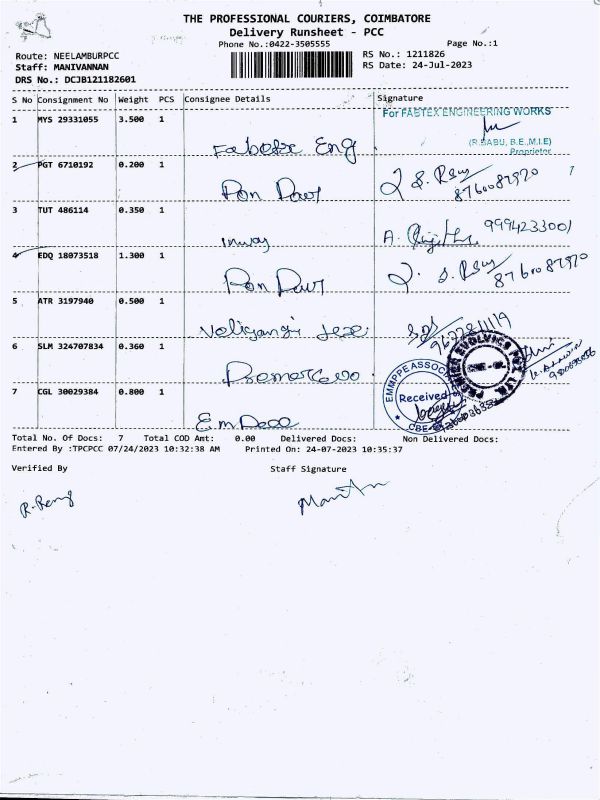 THE PROFESSIONAL COURIERS, COIMBATORE
Delivery Runsheet - PCC
Phone No.:0422-3505555 Page No.:1
Route: NEELAMBURPCC RS No.: 1211826
Staff: MANIVANNAN RS Date: 24-Jul-2023
DRS No.: DCJB121182601
S No Consignment No Weight PCS Consignee Details Signature
1 MYS 29331055 3.500 1 For FABTEX ENGINEERING WORKS
(R.BABU, B.E.,M.I.E)
Proprietor
Eng
2 PGT 6710192 0.200 1
Pon 8760087970
3 TUT 486114 0.350 1
A. 9994233001
4 EDQ 18073518 1.300 1
Pon 8760087970
5 ATR 3197940 0.500 1
9622811119
6 SLM 324707834 0.360 1
EVOLVICS PVT. LTD.
EMMPPE ASSOC
7 CGL 30029384 0.800 1 Received
CBE
Total No. Of Docs: 7 Total COD Amt: 0.00 Delivered Docs: Non Delivered Docs:
Entered By :TPCPCC 07/24/2023 10:32:38 AM Printed On: 24-07-2023 10:35:37
Verified By Staff Signature